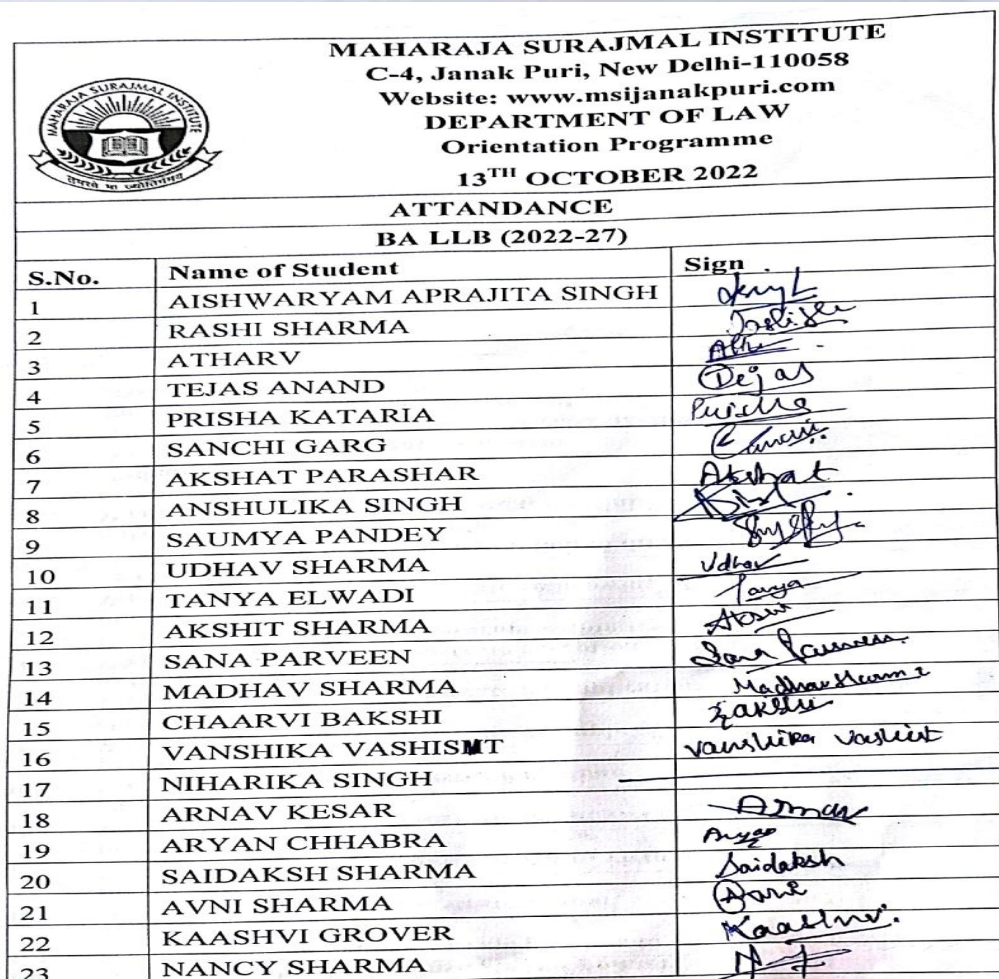 MAHARAJA SURAJMAL INSTITUTE
C-4, Janak Puri, New Delhi-110058
Website: www.msijanakpuri.com
DEPARTMENT OF LAW
Orientation Programme
13TH OCTOBER 2022
MAHARAJA SURAJMAL INSTITUTE
तमसो मा ज्योतिर्गमय
ATTANDANCE
BA LLB (2022-27)
S.No. Name of Student Sign
1 AISHWARYAM APRAJITA SINGH
2 RASHI SHARMA
3 ATHARV
4 TEJAS ANAND Tejas
5 PRISHA KATARIA Prisha
6 SANCHI GARG
7 AKSHAT PARASHAR Akshat
8 ANSHULIKA SINGH
9 SAUMYA PANDEY
10 UDHAV SHARMA Udhav
11 TANYA ELWADI Tanya
12 AKSHIT SHARMA
13 SANA PARVEEN Sana Parveen
14 MADHAV SHARMA Madhav Sharma
15 CHAARVI BAKSHI
16 VANSHIKA VASHISHT Vanshika Vashist
17 NIHARIKA SINGH
18 ARNAV KESAR Arnav
19 ARYAN CHHABRA Aryan
20 SAIDAKSH SHARMA Saidaksh
21 AVNI SHARMA Avni
22 KAASHVI GROVER Kaashvi
23 NANCY SHARMA